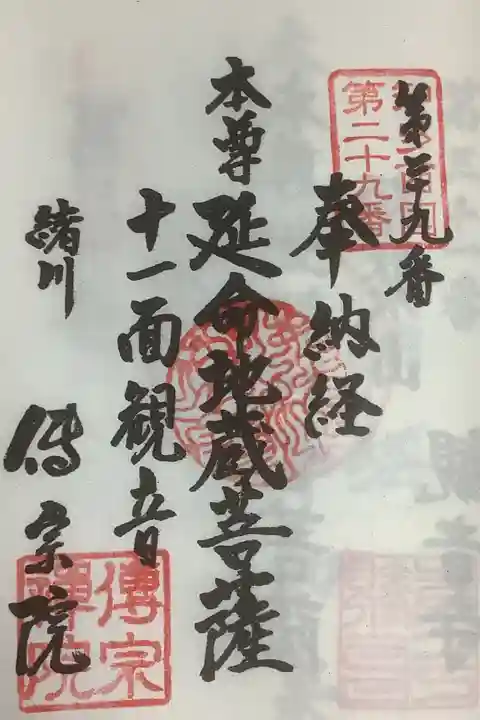 第二十九番
奉納経
第二十九番
本尊延命地蔵菩薩
十一面観音
緒川
傳宗院
傳宗
禅院